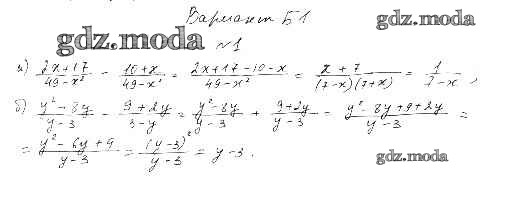 Вариант Б1
gdz.moda
gdz.moda
№1
а) (2x+17)/(49-x²) - (10+x)/(49-x²) = (2x+17-10-x)/(49-x²) = (x+7)/((7-x)(7+x)) = 1/(7-x),
б) (y²-8y)/(y-3) - (9+2y)/(3-y) = (y²-8y)/(y-3) + (9+2y)/(y-3) = (y²-8y+9+2y)/(y-3) =
= (y²-6y+9)/(y-3) = (y-3)²/(y-3) = y-3.
gdz.moda